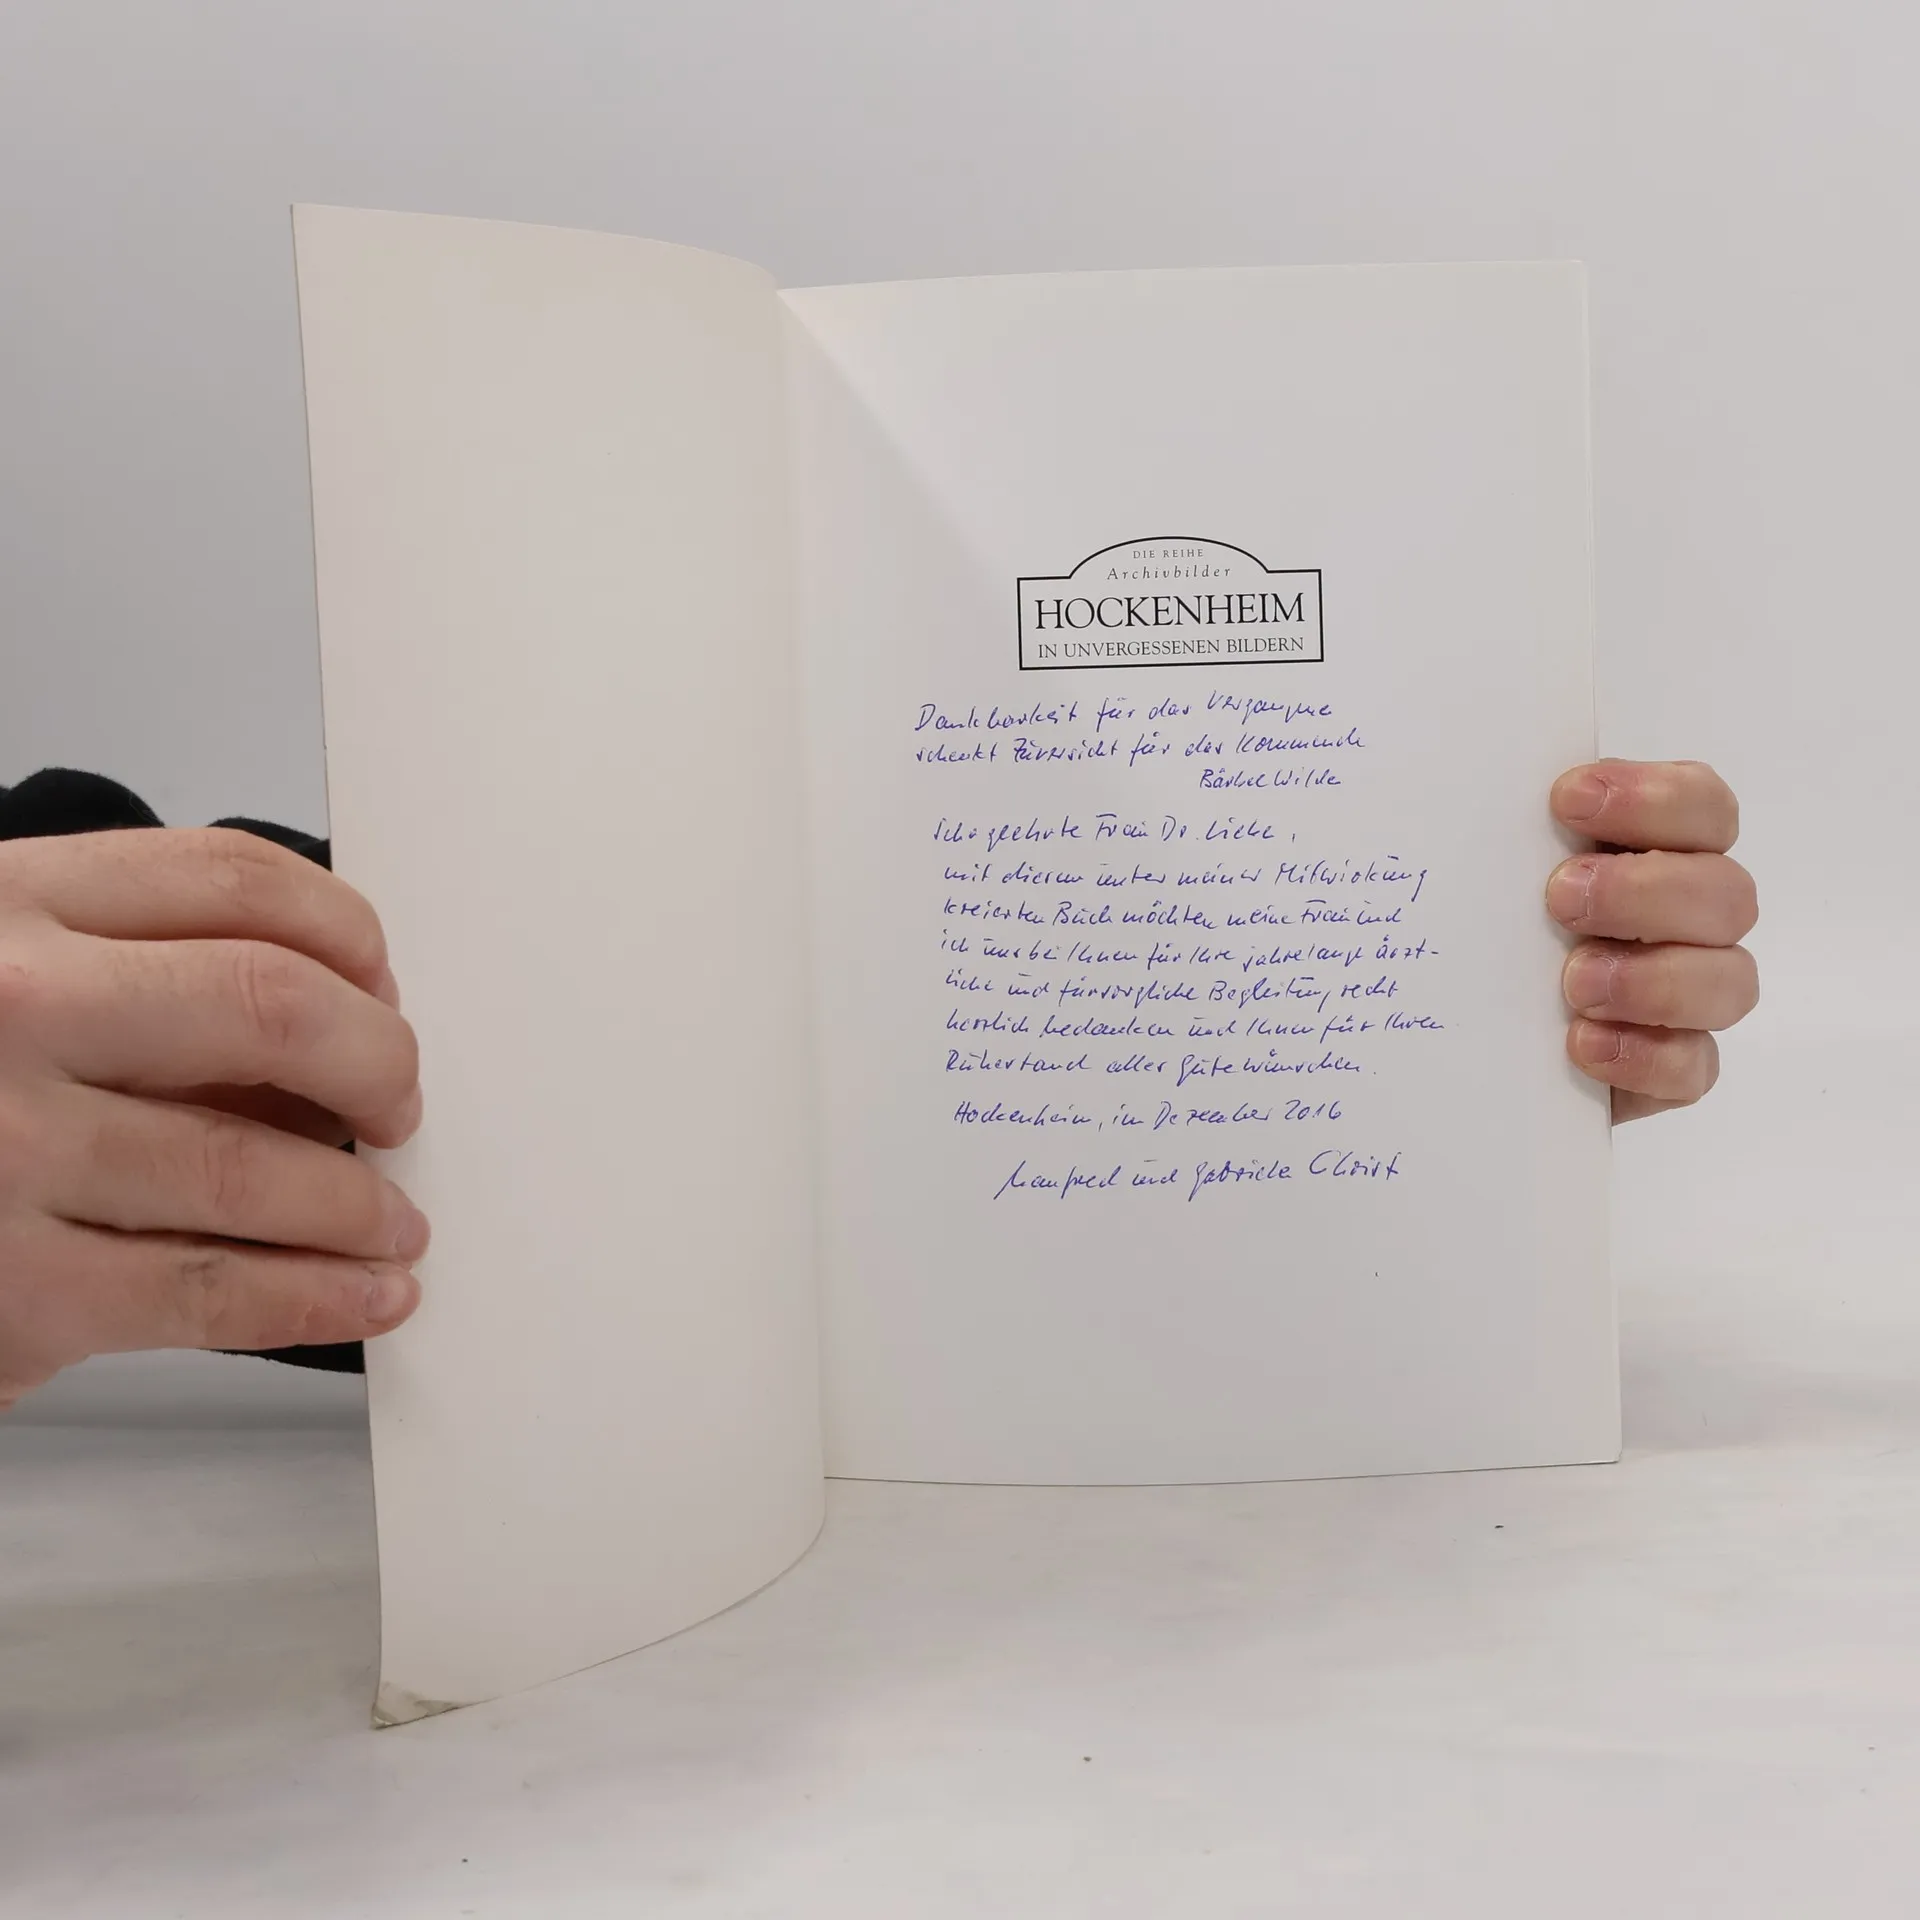 DIE REIHE
Archivbilder
HOCKENHEIM
IN UNVERGESSENEN BILDERN
Dankbarkeit für das Vergangene
schenkt Zuversicht für das Kommende
Bärbel Wilde
Sehr geehrte Frau Dr.
mit diesem unter meiner Mitwirkung
kreierten Buch möchten meine Frau und
ich uns bei Ihnen für Ihre jahrelange ärzt-
liche und fürsorgliche Begleitung recht
herzlich bedanken und Ihnen für Ihren
Ruhestand alles Gute wünschen.
Hockenheim, im Dezember 2016
Manfred und Gabriele Christ